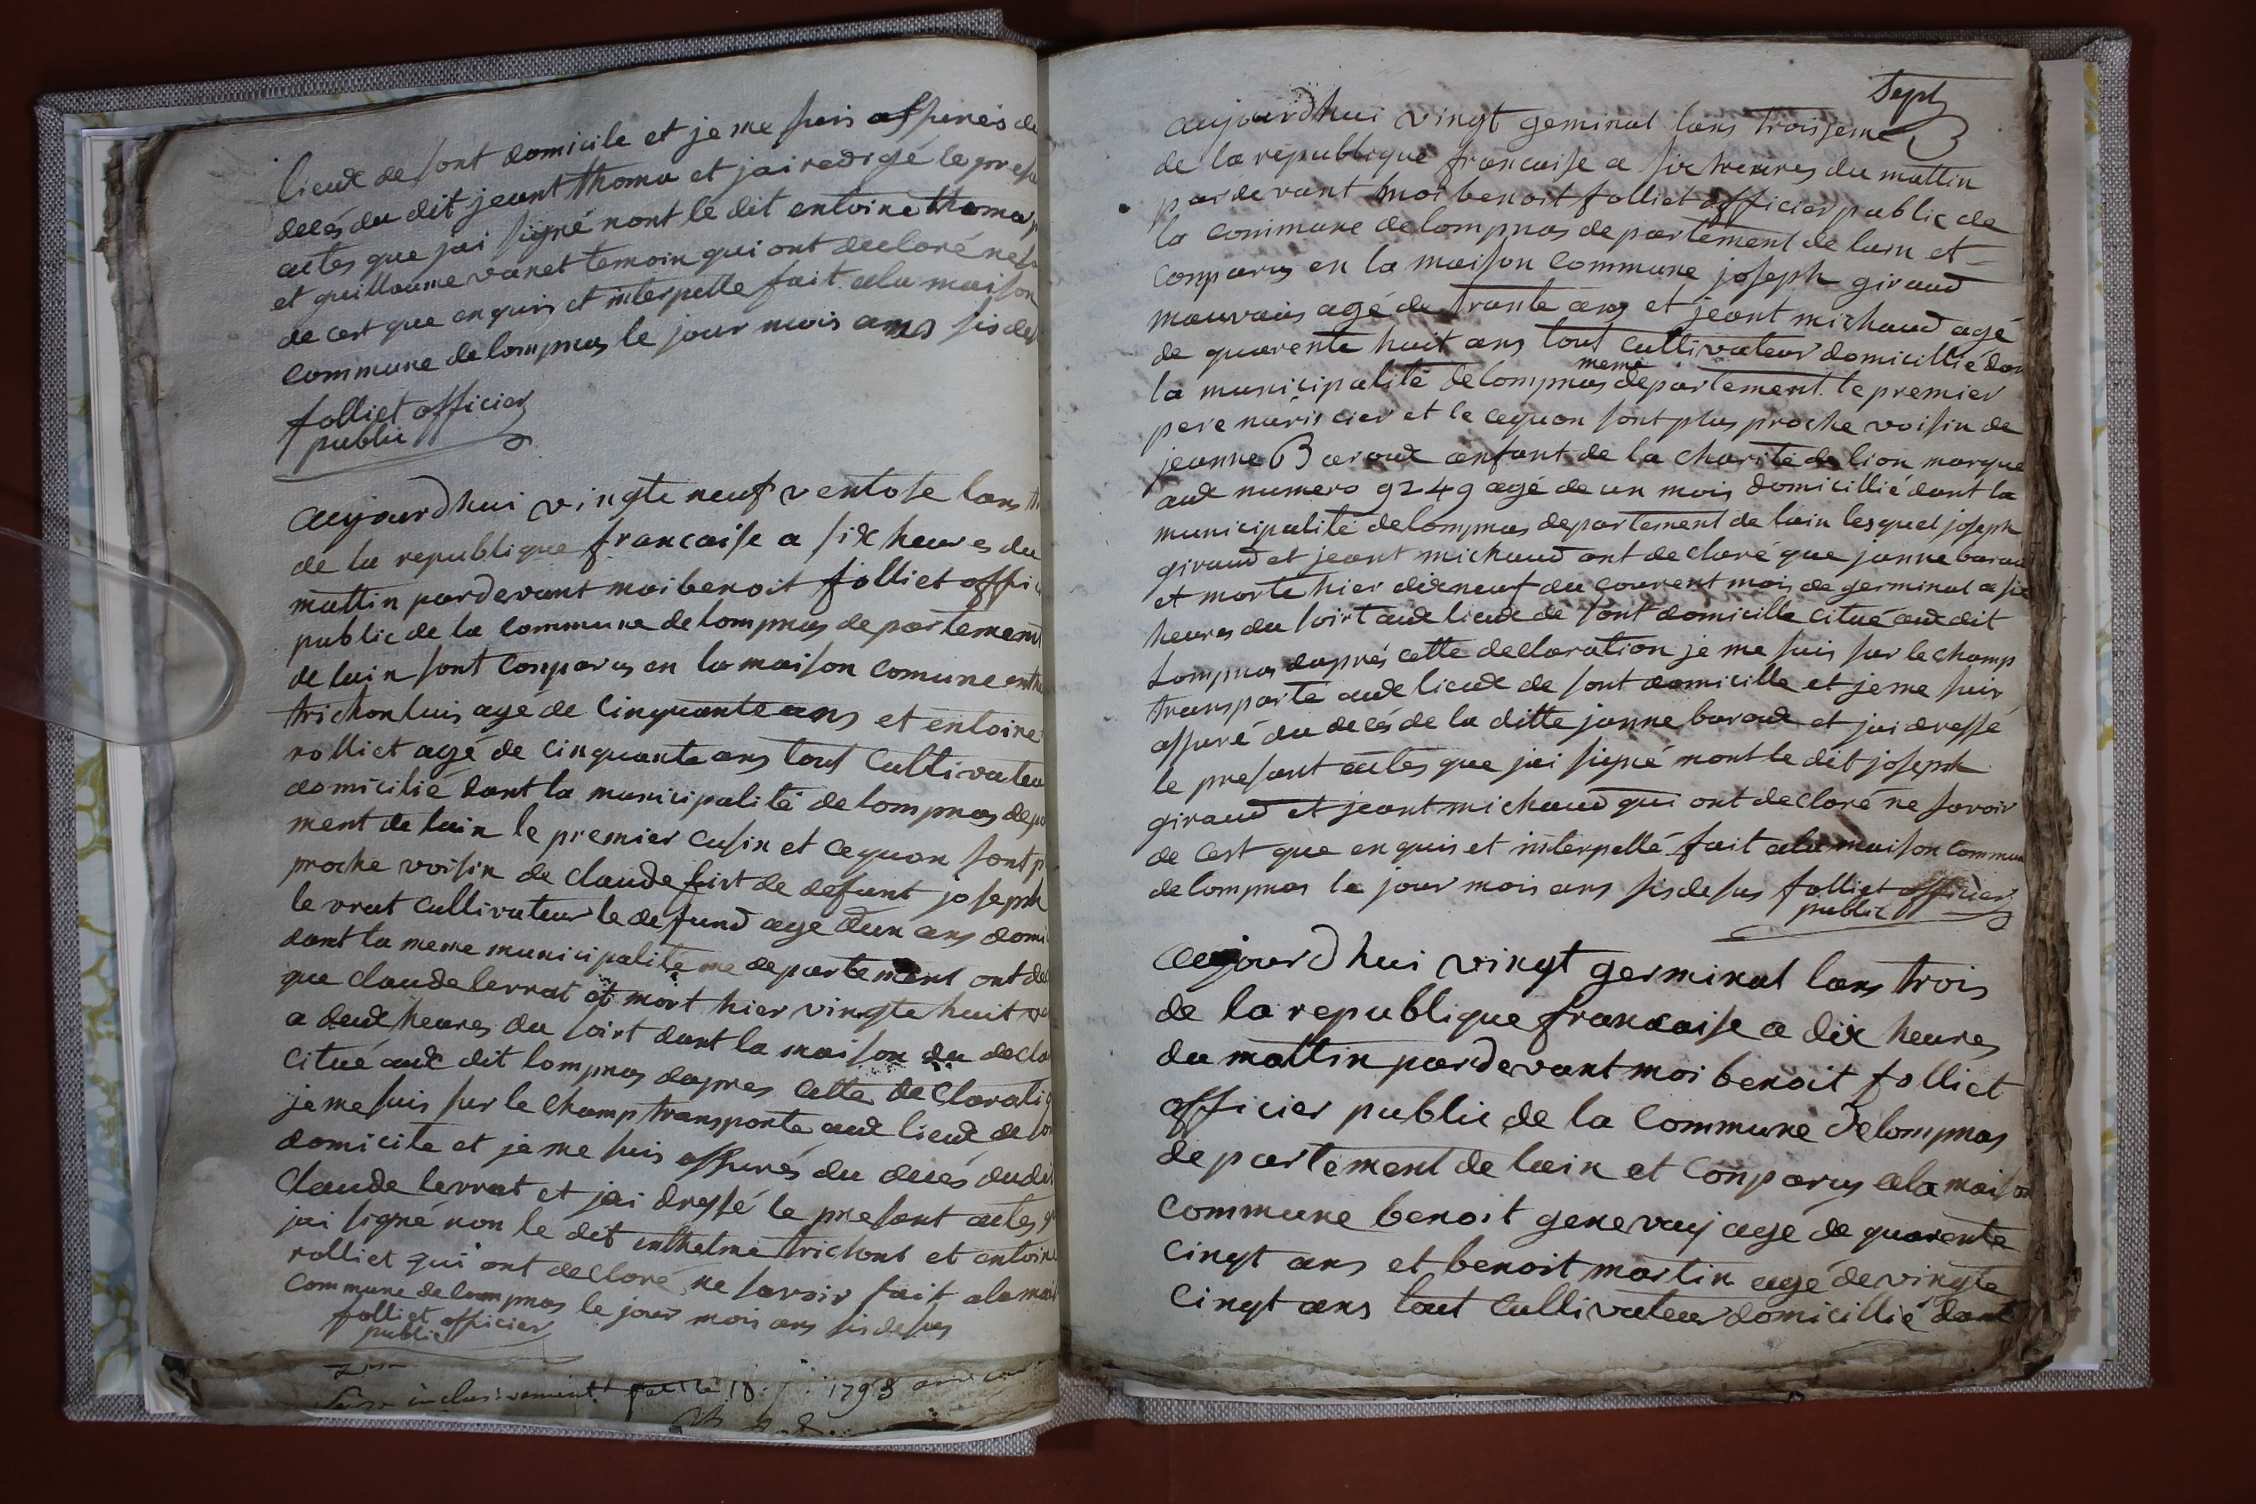 lieux de sont domicile et je me suis assurés du
decés du dit jeant thoma et jai redigé le presa
actes que jai signé nont le dit entoine thoma
et guillaume vanet temoin qui ont declaré ne sa
de cert que enquis et interpelle fait ala maison
commune de lompnas le jour mois ans sis des
folliet officier
public
aujourdhui vingte neuf ventose lans
de la republique francaise a six heures du
mattin pardevant moi benoit folliet offici
public de la commune de lompnas departement
de lain sont conparus en la maison comune enth
trichon luis age de cinquante ans et entoine
rolliet agé de cinquante ans tout cultivateu
domicilié dant la municipalité de lompnas depa
ment de lain le premier cusin et cequon sont p
proche voisin de claude de defunt joseph
le vrat cultivateur le defund age dun ans domi
dant la meme municipalite me departement ont de
que claude levrat et mort hier vingte huit ve
a deux heures du soirt dant la maison du decla
citué aux dit lompnas dapres cette declaratio
je me suis sur le champ transporte aux lieux de so
domicile et je me suis assurés du decés dudit
claude levrat et jai dressé le presant actes q
jai signé non le dit enthelme trichont et entoine
rolliet qui ont declaré ne savoir fait ala mai
commune de lompnas le jour mois ans sis desus
folliet officier
public
inclusivement 1793
Sept
aujourdhui vingt geminal lans troisieme
de la republique francaise a six heures du mattin
pardevant moi benoit folliet officier public de
la commune de lompnas departement de lain et
conparus en la maison commune joseph giraud
mauvais agé de trante ans et jeant michaud agé
de quarente huit ans tout cultivateur domicillié dan
la municipalité de lompnas meme departement le premier
pere nuriscier et le cequon sont plus proche voisin de
jeanne Baraux anfant de la charité de lion marque
aux numero 9249 agé de un mois domicillié dant la
municipalité de lompnas departement de lain lesquel joseph
giraud et jeant michaud ont declaré que janne barau
et morte hier dixneuf du courent mois de germinal a six
heures du soirt aux lieux de sont domicille citué aux dit
Lompnas daprés cette declaration je me suis sur le champ
transporte aux lieux de sont domicille et je me suis
assuré du decés de la ditte janne baraux et jai dressé
le presant actes que jai signé nont le dit joseph
giraud et jeant michaud qui ont declaré ne savoir
de cert que enquis et interpellé fait ala maison commun
de lompnas le jour mois ans sis desus folliet officier
public
aujourdhui vingt germinal lans trois
de la republique francaise a dix heures
du mattin pardevant moi benoit folliet
officier public de la commune de lompnas
departement de lain et conparus ala maison
commune benoit genevay agé de quarente
cinqt ans et benoit martin agé de vingte
cinqt ans tout cultivateur domicillié dant